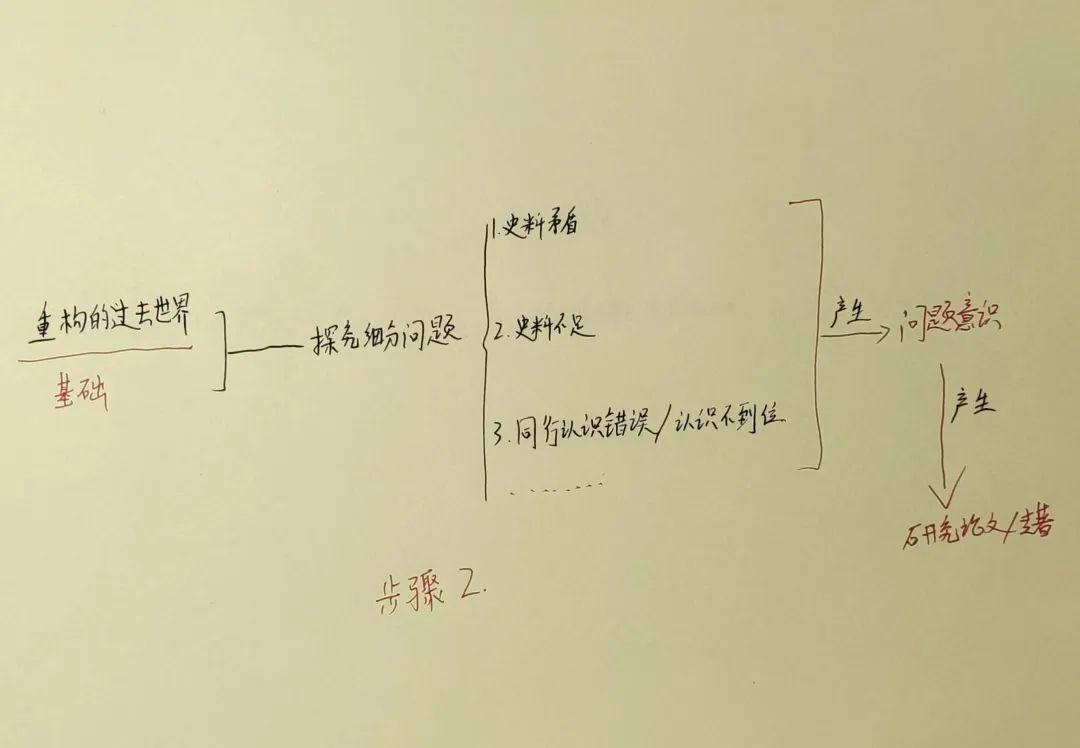 重构的过去世界
基础
探究细分问题
1.史料矛盾
2.史料不足
3.同行认识错误/认识不到位
.........
产生
问题意识
产生
研究论文/专著
步骤2.